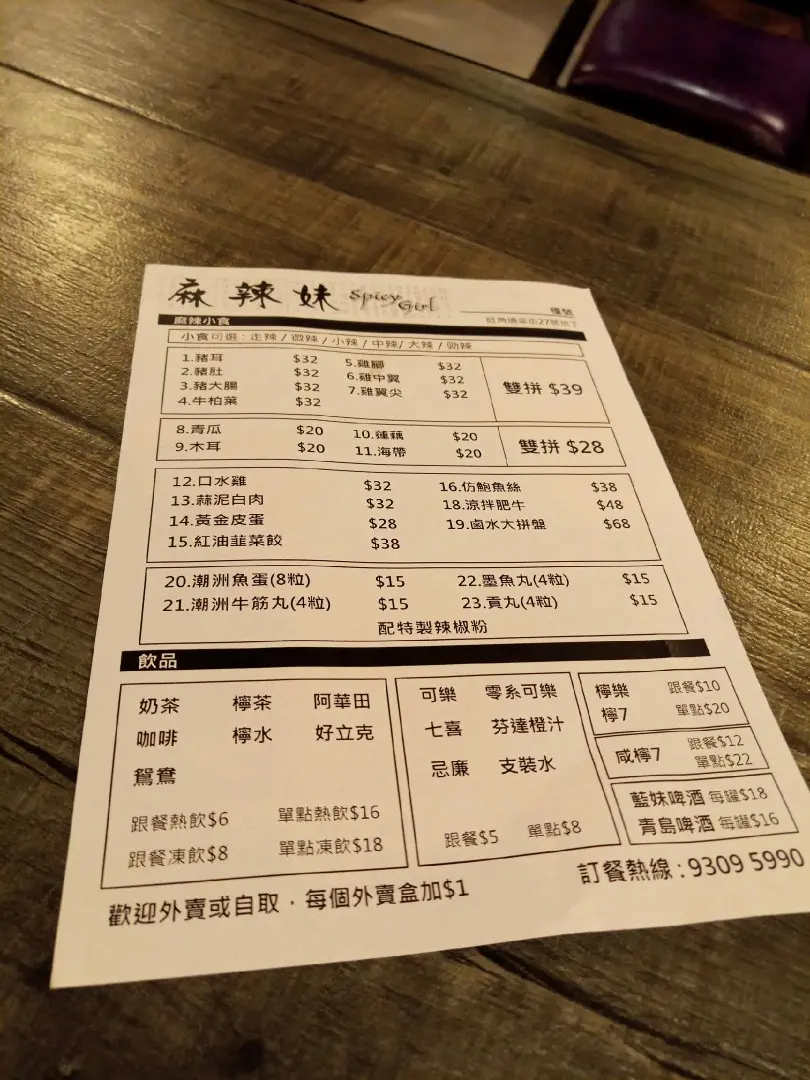 麻辣妹 Spicy Girl
檯號
麻辣小食
旺角通菜街27號地下
小食可選：走辣 / 微辣 / 小辣 / 中辣 / 大辣 / 勁辣
1.豬耳 $32 5.雞腳 $32
2.豬肚 $32 6.雞中翼 $32
3.豬大腸 $32 7.雞翼尖 $32
4.牛柏葉 $32
雙拼 $39
8.青瓜 $20 10.蓮藕 $20
9.木耳 $20 11.海帶 $20
雙拼 $28
12.口水雞 $32 16.仿鮑魚絲 $38
13.蒜泥白肉 $32 18.涼拌肥牛 $48
14.黃金皮蛋 $28 19.鹵水大拼盤 $68
15.紅油韮菜餃 $38
20.潮洲魚蛋(8粒) $15 22.墨魚丸(4粒) $15
21.潮洲牛筋丸(4粒) $15 23.貢丸(4粒) $15
配特製辣椒粉
飲品
奶茶 檸茶 阿華田
咖啡 檸水 好立克
鴛鴦
跟餐熱飲$6 單點熱飲$16
跟餐凍飲$8 單點凍飲$18
可樂 零系可樂
七喜 芬達橙汁
忌廉 支裝水
跟餐$5 單點$8
檸樂 跟餐$10
檸7 單點$20
咸檸7 跟餐$12
單點$22
藍妹啤酒 每罐$18
青島啤酒 每罐$16
歡迎外賣或自取．每個外賣盒加$1
訂餐熱線：9309 5990